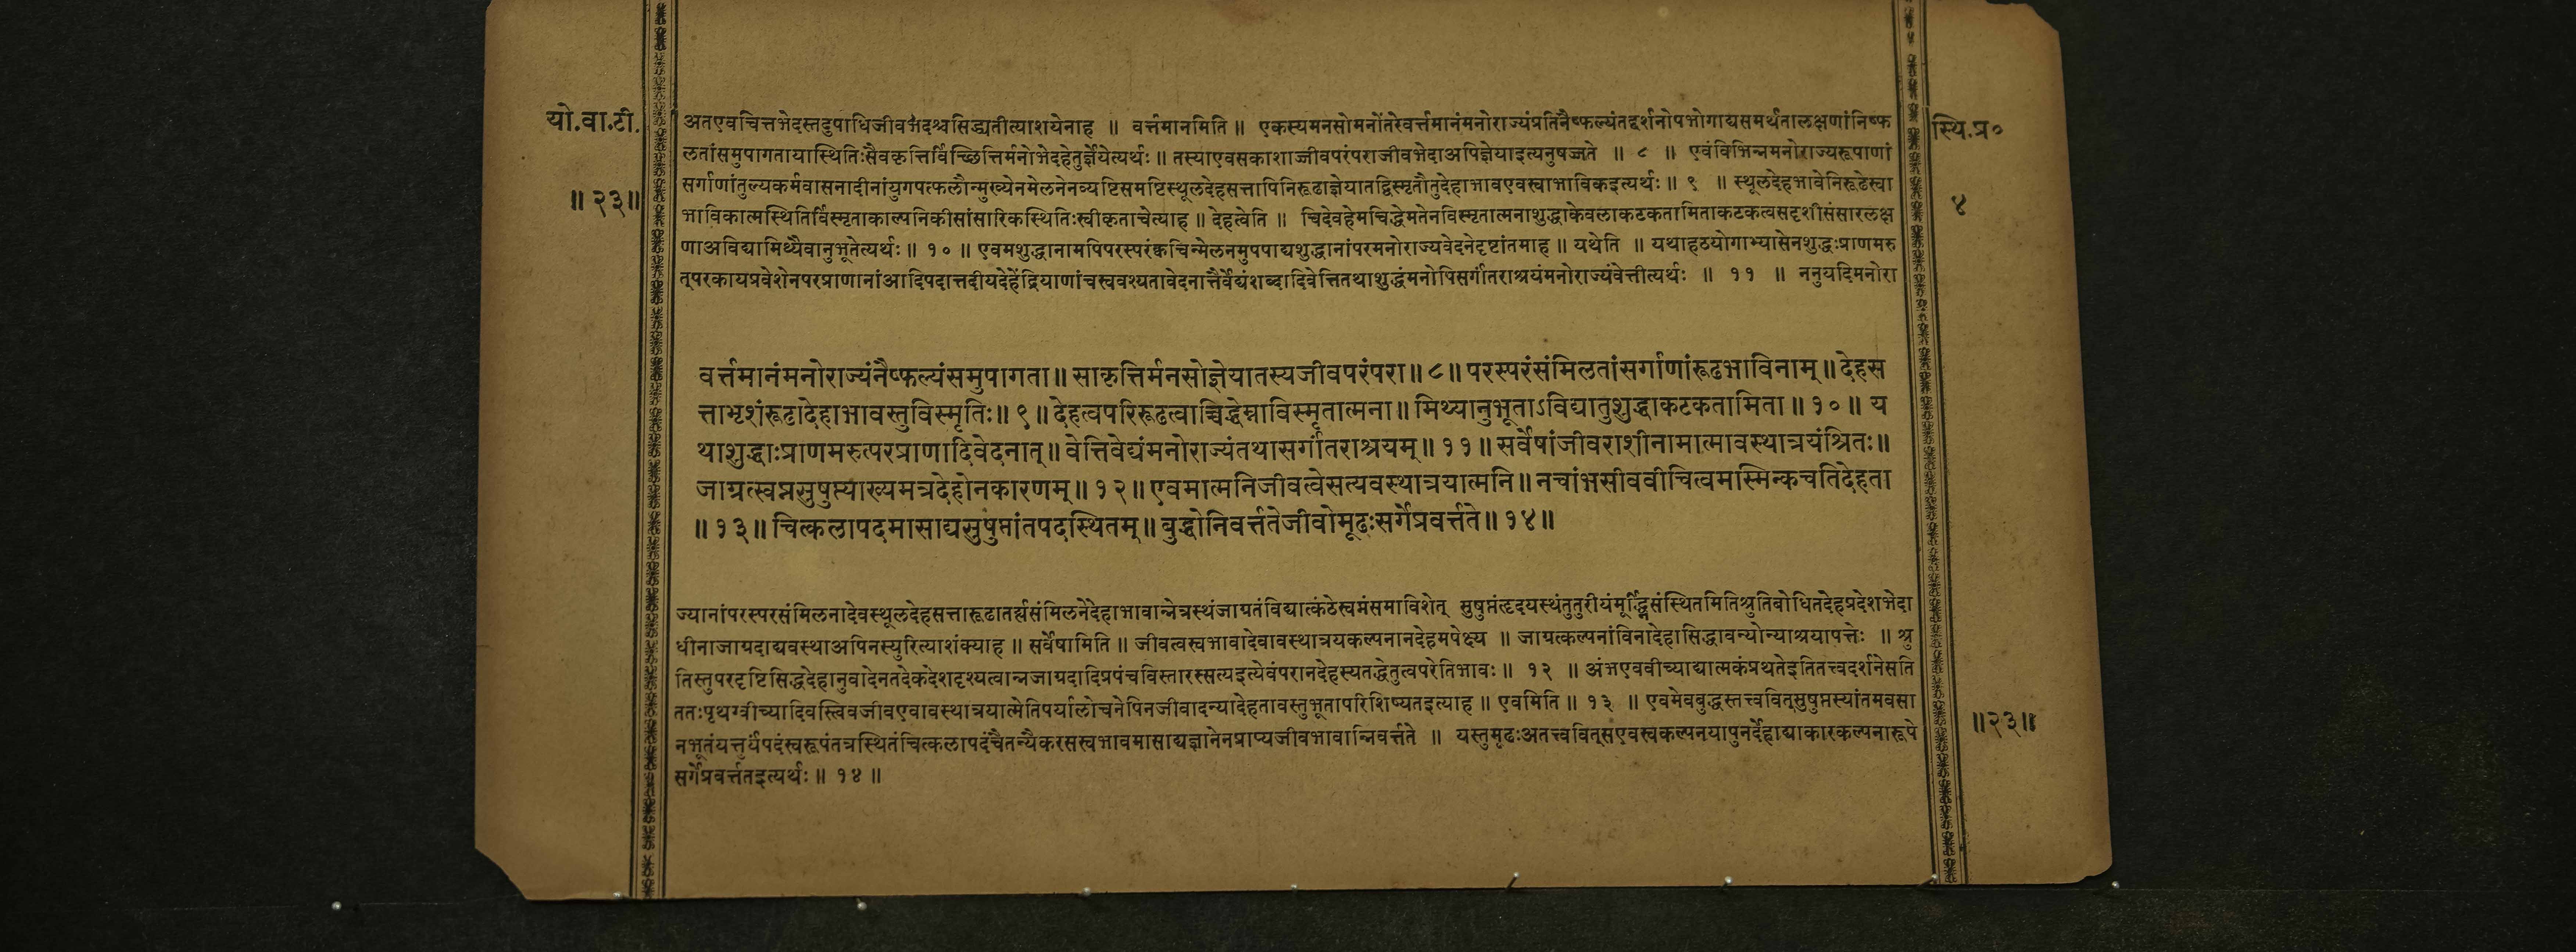 यो.वा.टी.
॥ २३॥
अतएवचित्तभेदस्तदुपाधिजीवभेदश्चसिद्ध्यतीत्याशयेनाह ॥ वर्त्तमानमिति ॥ एकस्यमनसोमनोंतरेवर्त्तमानंमनोराज्यंप्रतिनैष्फल्यंतद्दर्शनोपभोगाद्यसमर्थतालक्षणांनिष्फ
लतांसमुपागतायास्थितिःसैवकृत्तिर्विच्छित्तिर्मनोभेदहेतुर्ज्ञेयेत्यर्थः ॥ तस्याएवसकाशाज्जीवपरंपराजीवभेदाअपिज्ञेयाइत्यनुषज्जते ॥ ८ ॥ एवंविभिन्नमनोराज्यरूपाणां
सर्गाणांतुल्यकर्मवासनादीनांयुगपत्फलौन्मुख्येनमेलनेनव्यष्टिसमष्टिस्थूलदेहसत्तापिनिरूढाज्ञेयातद्विस्मृतौतुदेहाभावएवस्वाभाविकइत्यर्थः ॥ ९ ॥ स्थूलदेहभावेनिरूढेस्वा
भाविकात्मस्थितिर्विस्मृताकाल्पनिकीसांसारिकस्थितिःस्वीकृताचेत्याह ॥ देहत्वेति ॥ चिदेवहेमचिद्धेमतेनविस्मृतात्मनाशुद्धाकेवलाकटकतामिताकटकत्वसदृशीसंसारलक्ष
णाअविद्यामिथ्यैवानुभूतेत्यर्थः ॥ १० ॥ एवमशुद्धानामपिपरस्परंक्वचिन्मेलनमुपपाद्यशुद्धानांपरमनोराज्यवेदनेदृष्टांतमाह ॥ यथेति ॥ यथाहठयोगाभ्यासेनशुद्धःप्राणमरु
त्परकायप्रवेशेनपरप्राणानांआदिपदात्तदीयदेहेंद्रियाणांचस्ववश्यतावेदनात्तैर्वेद्यंशब्दादिवेत्तितथाशुद्धंमनोपिसर्गांतराश्रयंमनोराज्यंवेत्तीत्यर्थः ॥ ११ ॥ ननुयदिमनोरा
स्थि.प्र०
४
वर्त्तमानंमनोराज्यंनैष्फल्यंसमुपागता ॥ साकृत्तिर्मनसोज्ञेयातस्यजीवपरंपरा ॥ ८ ॥ परस्परंसंमिलतांसर्गाणांरूढभाविनाम् ॥ देहस
त्ताभृशंरूढादेहाभावस्तुविस्मृतिः ॥ ९ ॥ देहत्वपरिरूढत्वाच्चिद्धेम्नाविस्मृतात्मना ॥ मिथ्यानुभूताऽविद्यातुशुद्धाकटकतामिता ॥ १० ॥ य
थाशुद्धाःप्राणमरुत्परप्राणादिवेदनात् ॥ वेत्तिवेद्यंमनोराज्यंतथासर्गांतराश्रयम् ॥ ११ ॥ सर्वेषांजीवराशीनामात्मावस्थात्रयंश्रितः ॥
जाग्रत्स्वप्नसुषुप्त्याख्यमत्रदेहोनकारणम् ॥ १२ ॥ एवमात्मनिजीवत्वेसत्यवस्थात्रयात्मनि ॥ नचांभसीववीचित्वमस्मिन्कचतिदेहता
॥ १३ ॥ चित्कलापदमासाद्यसुषुप्तांतपदस्थितम् ॥ बुद्धोनिवर्त्ततेजीवोमूढःसर्गेप्रवर्त्तते ॥ १४ ॥
ज्यानांपरस्परसंमिलनादेवस्थूलदेहसत्तारूढातर्ह्यसंमिलनेदेहाभावान्नेत्रस्थंजाग्रतंविद्यात्कंठेस्वप्नंसमाविशेत् सुषुप्तंहृदयस्थंतुतुरीयंमूर्द्ध्निसंस्थितमितिश्रुतिबोधितदेहप्रदेशभेदा
धीनाजाग्रदाद्यवस्थाअपिनस्युरित्याशंक्याह ॥ सर्वेषामिति ॥ जीवत्वस्वभावादेवावस्थात्रयकल्पनानदेहमपेक्ष्य ॥ जाग्रत्कल्पनांविनादेहासिद्धावन्योन्याश्रयापत्तेः ॥ श्रु
तिस्तुपरदृष्टिसिद्धदेहानुवादेनतदेकदेशदृश्यत्वान्नजाग्रदादिप्रपंचविस्तारस्सत्यइत्येवंपरानदेहस्यतद्धेतुत्वपरेतिभावः ॥ १२ ॥ अंभएववीच्याद्यात्मकंप्रथतेइतितत्त्वदर्शनेसति
ततःपृथग्वीच्यादिवस्त्विवजीवएवावस्थात्रयात्मेतिपर्यालोचनेपिनजीवादन्यादेहतावस्तुभूतापरिशिष्यतइत्याह ॥ एवमिति ॥ १३ ॥ एवमेवबुद्धस्तत्त्ववित्सुषुप्तस्यांतमवसा
नभूतंयत्तुर्यंपदंस्वरूपंतत्रस्थितंचित्कलापदंचैतन्यैकरसस्वभावमासाद्यज्ञानेनप्राप्यजीवभावान्निवर्त्तते ॥ यस्तुमूढःअतत्त्ववित्सएवस्वकल्पनयापुनर्देहाद्याकारकल्पनारूपे
सर्गेप्रवर्त्ततइत्यर्थः ॥ १४ ॥
॥२३॥